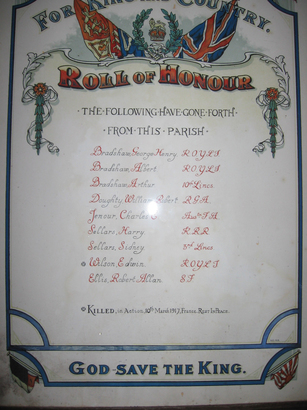 FOR KING AND COUNTRY.
ROLL OF HONOUR
·THE·FOLLOWING·HAVE·GONE·FORTH·
·FROM·THIS·PARISH·
Bradshaw, George Henry K.O.Y.L.I
Bradshaw, Albert K.O.Y.L.I
Bradshaw, Arthur Lincs
Doughty, William Robert R.G.A.
Jenvur, Charles
Sellars, Harry
Sellars, Sidney Lincs
Wilson, Edwin K.O.Y.L.I
Ellis, Robert Allan
KILLED, in Action, March 1917, France. Rest In Peace.
GOD·SAVE THE KING.